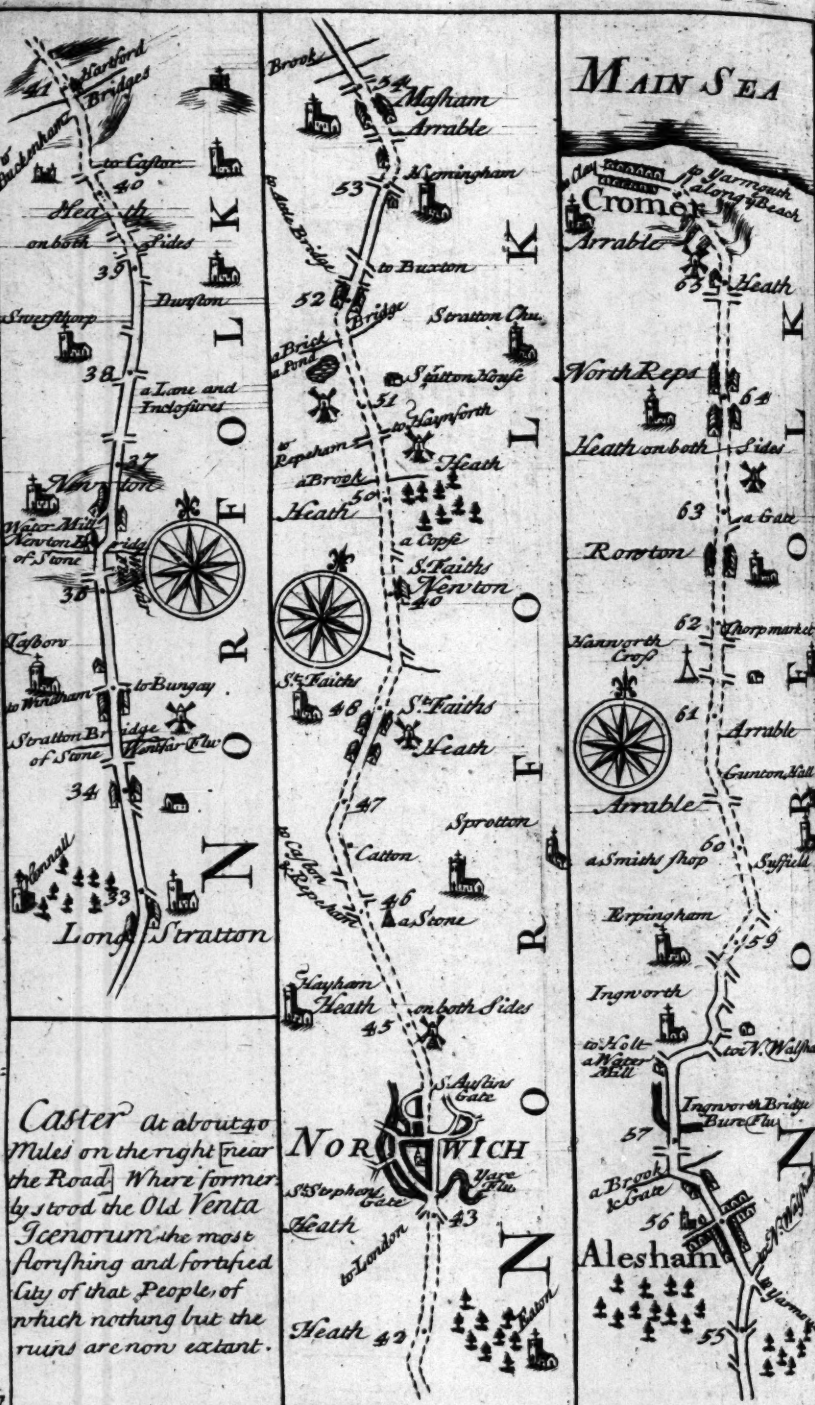 Hartford
41
Bridges
to
Buckenham
to Castor
40
Heath
on both Sides
39
Dunston
Swersthorp
38
a Lane and
Inclosures
37
Newton
Water Mill
Newton Bridg
of Stone
36
Tasboro
to Windham
to Bungay
Stratton Bridge
of Stone
Wentfar Flu
34
Wannall
33
Long Stratton
NORFOLK
Caster At about 40
Miles on the right [near
the Road] Where former
ly stood the Old Venta
Icenorum the most
florishing and fortified
City of that People, of
which nothing but the
ruins are now extant.
Brook
54
Masham
Arrable
53
Heminingham
to Atle Bridge
to Buxton
52
Bridge
Stratton Chu.
a Brick
a Pond
Stratton House
51
to Haynforth
to
Repeham
Heath
a Brook
50
Heath
a Copse
St. Faiths
Newton
40
St. Faiths
48
St. Faiths
Heath
47
Sprotton
to Caston
& Repeham
Catton
46
a Stone
Hayham
Heath
on both Sides
45
S. Austins
Gate
NORWICH
St Stephens
Gate
Yare
Flu.
Heath
43
to London
Eaton
Heath
42
NORFOLK
MAIN SEA
to Cley
to Yarmouth
along ye Beach
Cromer
Arrable
65
Heath
North Reps
64
Heath on both Sides
63
a Gate
Rowton
62
Thorpmarket
Hanworth
Cross
61
Arrable
Gunton Hall
Arrable
60
a Smiths shop
Suffield
Erpingham
59
Ingworth
to Holt
a Water
Mill
to N. Walsha
Ingworth Bridge
Bure Flu.
57
a Brook
& Gate
56
to N. Walsha
Alesham
to Yarmo
55
NORFOLK